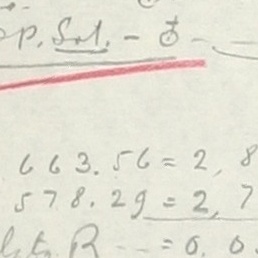 op. Sol. - ♁ -
663.56 = 2, 8
578.29 = 2, 7
R -- = 0. 0.